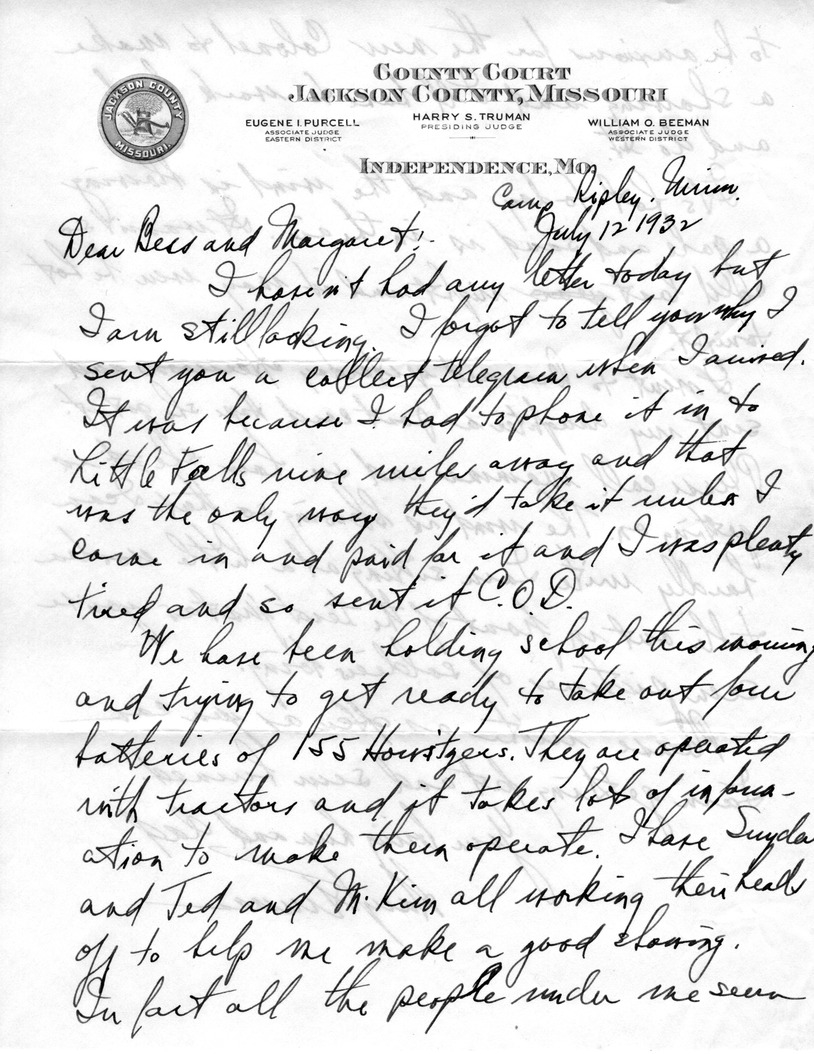 COUNTY COURT
JACKSON COUNTY, MISSOURI
JACKSON COUNTY
MISSOURI.
EUGENE I. PURCELL
ASSOCIATE JUDGE
EASTERN DISTRICT
HARRY S. TRUMAN
PRESIDING JUDGE
WILLIAM O. BEEMAN
ASSOCIATE JUDGE
WESTERN DISTRICT
INDEPENDENCE, MO.
Camp Ripley, Minn.
July 12 1932
Dear Bess and Margaret:-
I haven't had any letter today but
I am still looking. I forgot to tell you why I
sent you a collect telegram when I arrived.
It was because I had to phone it in to
Little Falls nine miles away and that
was the only way they'd take it unless I
came in and paid for it and I was plenty
tired and so sent it C.O.D.
We have been holding school this morning
and trying to get ready to take out four
batteries of 155 Howitzers. They are operated
with tractors and it takes lots of inform-
ation to make them operate. I have Snyder
and Ted and McKim all working their heads
off to help me make a good showing.
In fact all the people under me seem